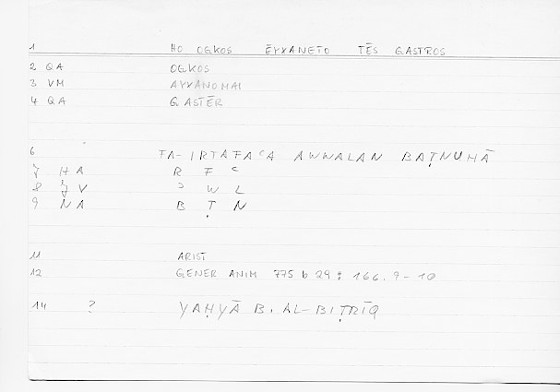 1 HO OGKOS ĒYXANETO TĒS GASTROS
2 QA OGKOS
3 VM AYXANOMAI
4 QA GASTĒR
6 FA-IRTAFAʿA AWWALAN BAṬNUHĀ
7 HA R F ʿ
8 JV ʾ W L
9 NA B Ṭ N
11 ARIST
12 GENER ANIM 775 b 29 : 166.9-10
14 ? YAḤYĀ B. AL-BIṬRĪQ